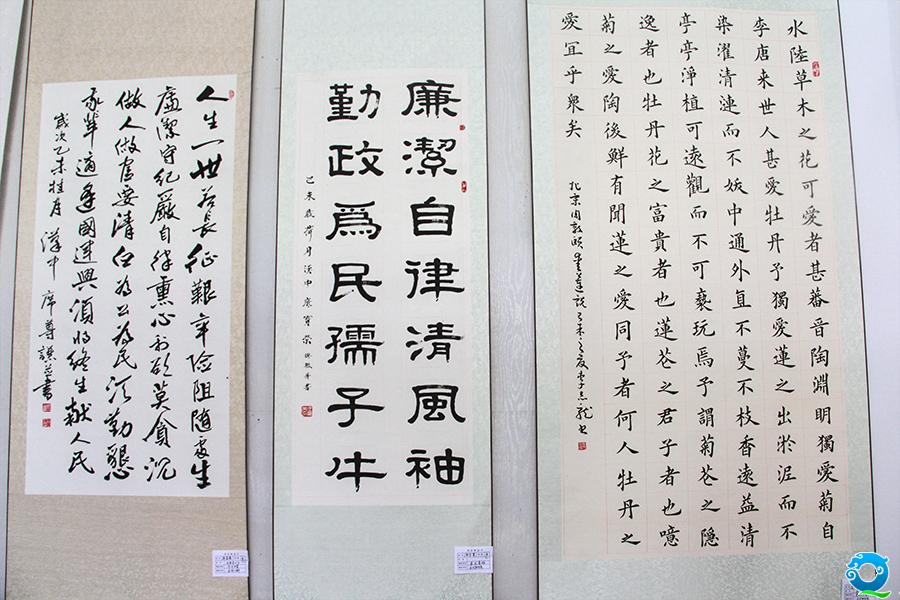 水陸草木之花可愛者甚蕃晉陶淵明獨愛菊自
李唐来世人甚愛牡丹予獨愛蓮之出淤泥而不
染濯清漣而不妖中通外直不蔓不枝香遠益清
亭亭淨植可遠觀而不可褻玩焉予謂菊花之隱
逸者也牡丹花之富貴者也蓮花之君子者也噫
菊之愛陶後鮮有聞蓮之愛同予者何人牡丹之
愛宜乎衆矣
北宋周敦頤愛蓮說乙未之夏李志龍书
廉潔自律清風袖
勤政爲民孺子牛
乙未歲荷月漢中
人生一世若長征艱辛险阻隨處生
廉潔守纪嚴自律熏心利欲莫貪沉
做人做官要清白为公为民須勤懇
我輩適逢國運興須将终生献人民
歲次乙未桂月漢中席尊謙書